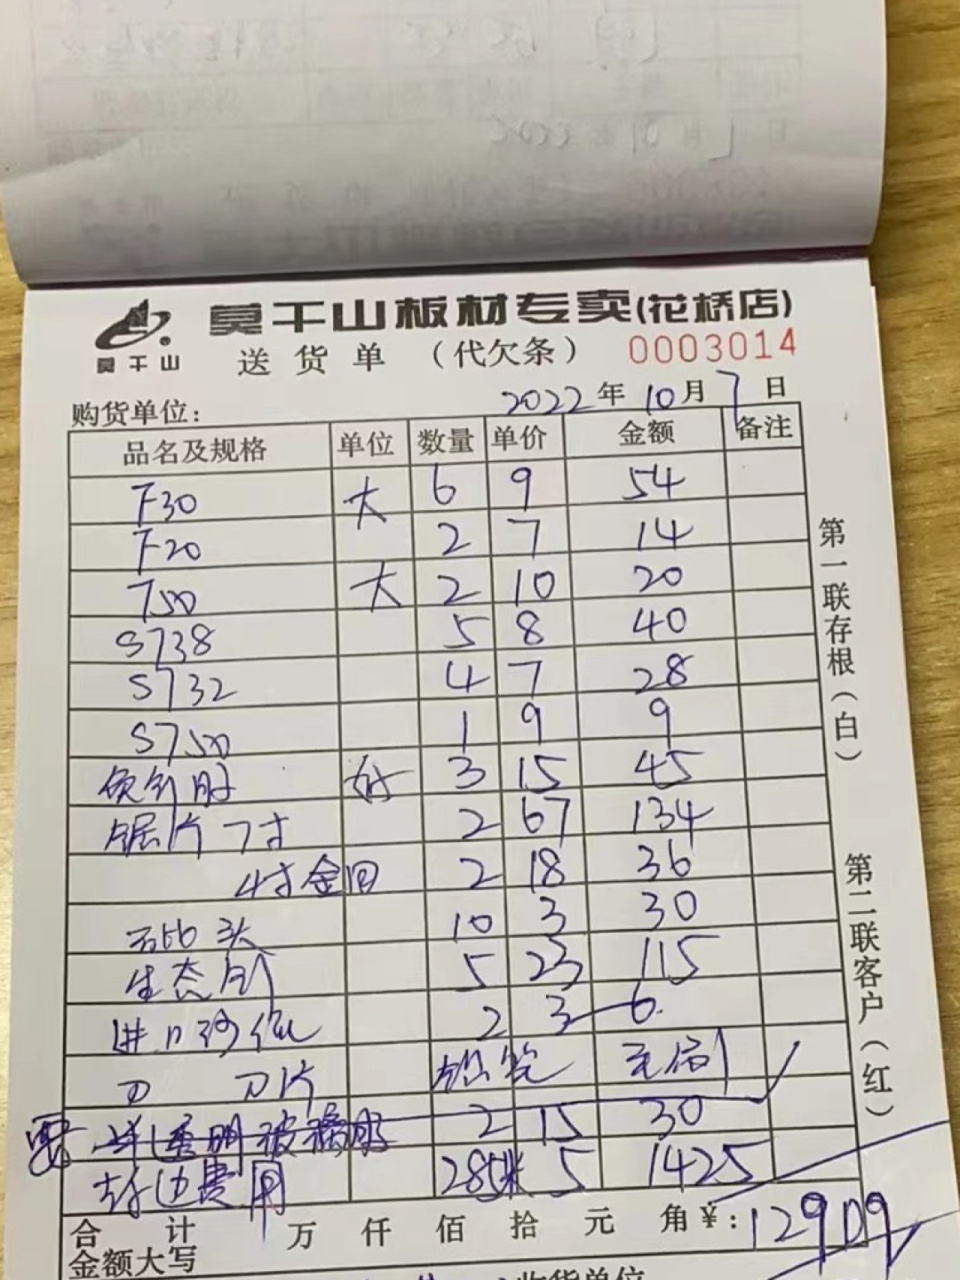 莫干山板材专卖(花桥店)
莫干山
送货单(代欠条) 0003014
购货单位: 2022年10月7日
品名及规格 单位 数量 单价 金额 备注
F30 大 6 9 54
F20 2 7 14
T50 大 2 10 20
ST38 5 8 40
ST32 4 7 28
ST50 1 9 9
3 15 45
锯片 7寸 2 67 134
4寸金田 2 18 36
头 10 3 30
生态 5 23 115
进口 2 3 6
刀 刀片
半透明玻璃胶 2 15 30
封边费用 285米 5 1425
合计 万仟佰拾元角¥:
金额大写
收货单位
第一联存根(白)
第二联客户(红)